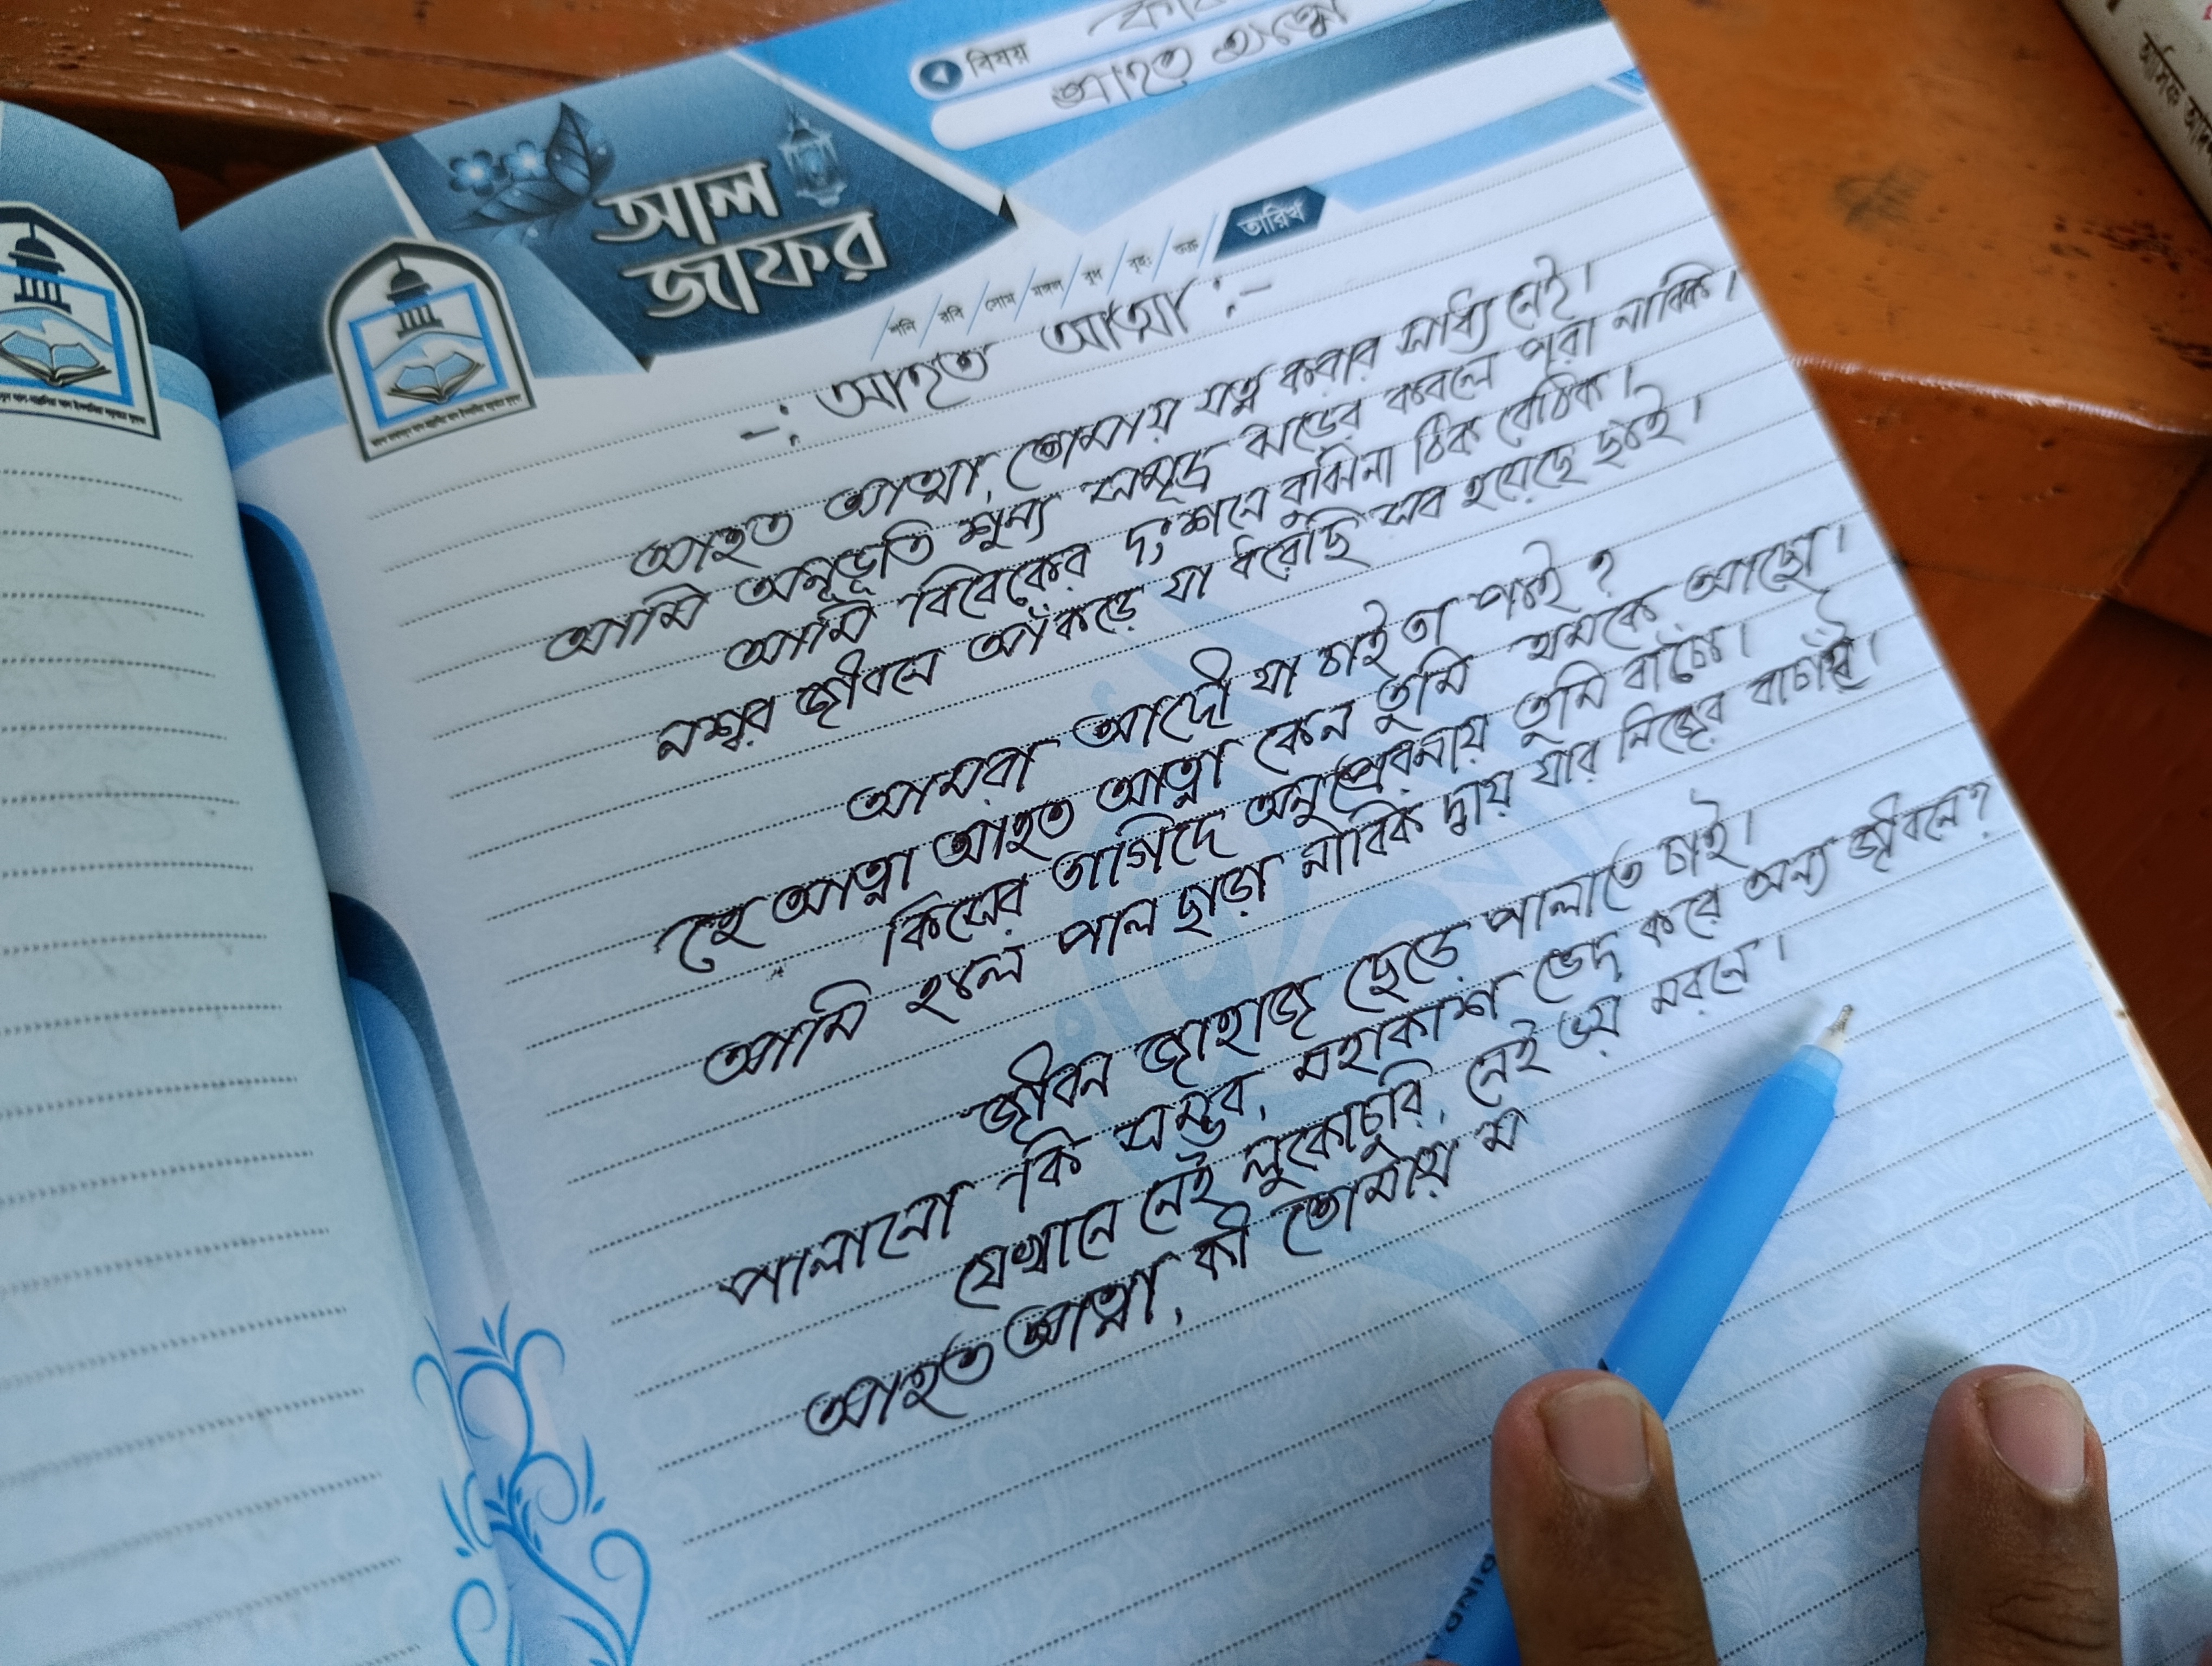 বিষয়
আহত
আল
জাফর
শনি / রবি / সোম / মঙ্গল / বুধ / বৃহ: / শুক্র / তারিখ
-: আহত আত্মা :-
আহত আত্মা, তোমায় যত্ন করার সাধ্যি নেই।
আমি অনুভূতি শূন্য সমুদ্র ঝড়ের কবলে পরা নাবিক।
আমি বিবেকের দংশনে বুঝিনা ঠিক বেঠিক।
নশ্বর জীবনে আঁকড়ে যা ধরেছি সব হয়েছে ছাই।
আমরা আদৌ যা চাই তা পাই ?
হে আত্না আহত আত্না কেন তুমি থমকে আছো।
কিসের তাগিদে অনুপ্রেরনায় তুমি বাঁচো।
আমি হলে পাল ছাড়া নাবিক দ্বায় যার নিজের বাচায়।
জীবন জাহাজ ছেড়ে পালাতে চাই।
পালানো কি সম্ভব, মহাকাশ ভেদ করে অন্য জীবনে?
যেখানে নেই লুকোচুরি, নেই ভয় মরনে।
আহত আত্না, কী তোমায় ম